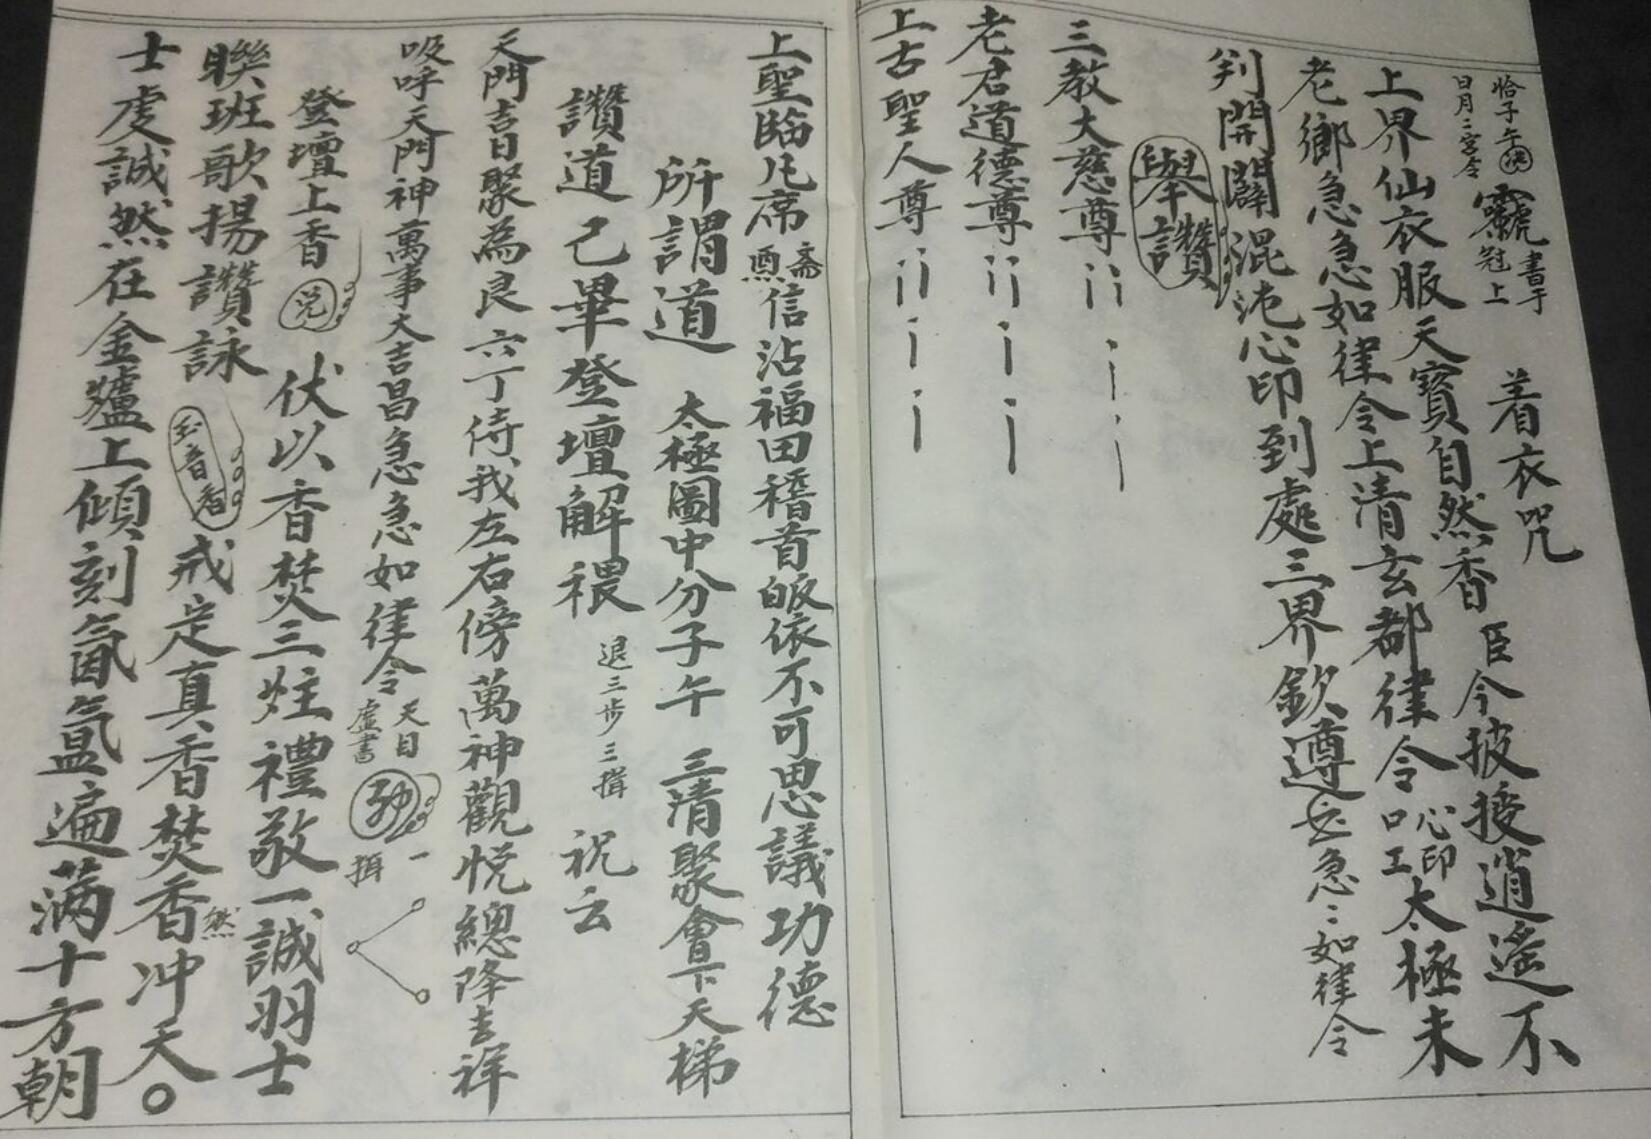 恰子午
日月二宮令
冠上
書于
着衣咒
臣今披挼逍遙不
上界仙衣服天寶自然香
老鄉急急如律令上清玄都律令
心印
口工
太極未
判開闢混沌心印到處三界欽遵
急〻如律令
舉讚
三教大慈尊
老君道德尊
上古聖人尊
上聖臨凡席
齋
信沾福田稽首皈依不可思議功德
所謂道
太極圖中分子午
三清聚會下天梯
讚道已畢登壇解穢
退三步三揖
祝云
天門吉日聚為良六丁侍我左右傍萬神觀悅總降吉祥
吸呼天門神萬事大吉昌急急如律令
天目
虛書
一
揖
登壇上香
伏以香焚三炷禮敬一誠羽士
聯班歌揚讚詠
戒定真香焚香冲天
然
士虔誠然在金爐上傾刻氤氳遍滿十方朝